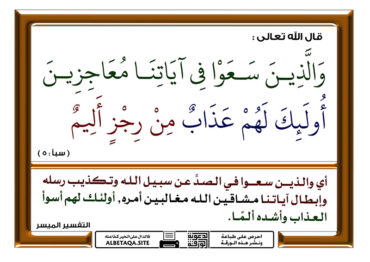 قال الله تعالى :
وَالَّذِينَ سَعَوْا فِي آيَاتِنَا مُعَاجِزِينَ
أُولَئِكَ لَهُمْ عَذَابٌ مِنْ رِجْزٍ أَلِيمٌ
( سبأ : ٥ )
أي والذين سعوا في الصدِّ عن سبيل الله وتكذيب رسله
وإبطال آياتنا مشاقين الله مغالبين أمره, أولئك لهم أسوأ
العذاب وأشده ألمًا.
التفسير الميسر
احرص على طباعة
ونشر هذه الورقة
فالدال على الخير كفاعله
ALBETAQA.SITE